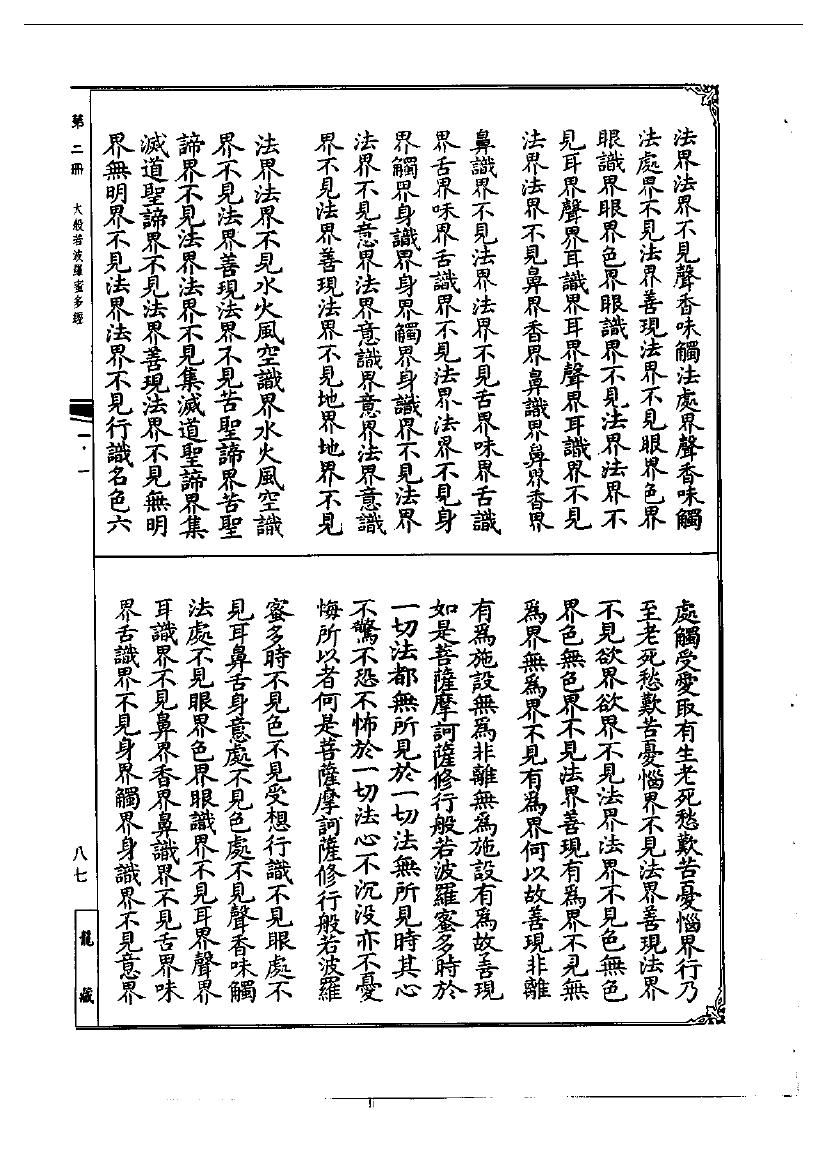 法界法界不見聲香味觸法處界聲香味觸
法處界不見法界善現法界不見眼界色界
眼識界眼界色界眼識界不見法界法界不
見耳界聲界耳識界耳界聲界耳識界不見
法界法界不見鼻界香界鼻識界鼻界香界
鼻識界不見法界法界不見舌界味界舌識
界舌界味界舌識界不見法界法界不見身
界觸界身識界身界觸界身識界不見法界
法界不見意界法界意識界意界法界意識
界不見法界善現法界不見地界地界不見
法界法界不見水火風空識界水火風空識
界不見法界善現法界不見苦聖諦界苦聖
諦界不見法界法界不見集滅道聖諦界集
滅道聖諦界不見法界善現法界不見無明
界無明界不見法界法界不見行識名色六
處觸受愛取有生老死愁歎苦憂惱界行乃
至老死愁歎苦憂惱界不見法界善現法界
不見欲界欲界不見法界法界不見色無色
界色無色界不見法界善現有為界不見無
為界無為界不見有為界何以故善現非離
有為施設無為非離無為施設有為故善現
如是菩薩摩訶薩修行般若波羅蜜多時於
一切法都無所見於一切法無所見時其心
不驚不恐不怖於一切法心不沉沒亦不憂
悔所以者何是菩薩摩訶薩修行般若波羅
蜜多時不見色不見受想行識不見眼處不
見耳鼻舌身意處不見色處不見聲香味觸
法處不見眼界色界眼識界不見耳界聲界
耳識界不見鼻界香界鼻識界不見舌界味
界舌識界不見身界觸界身識界不見意界
第二冊 大般若波羅蜜多經
一·一
八七
龍藏